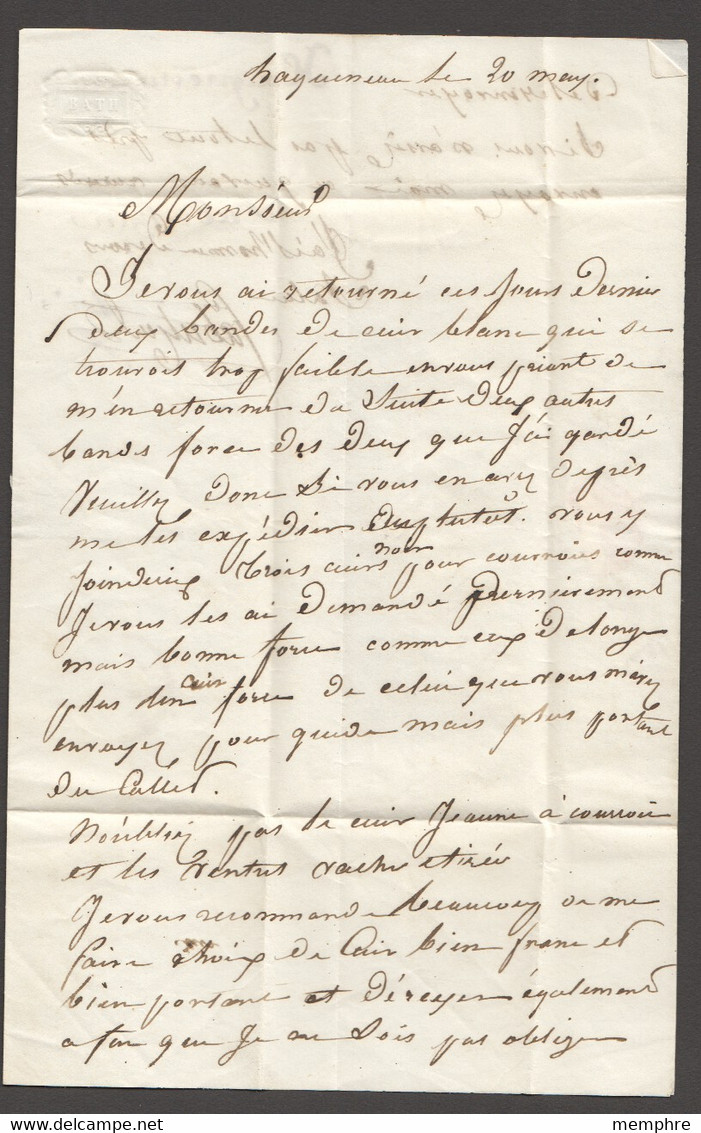 haguenau le 20 may.
Monsieur
Je vous ai retourné ces jours dernier
deux bandes de cuir blanc qui se
trouvoit trop faible en vous priant de
m'en retourner de suite deux autres
bands force des deux que J'ai gardé
Veuillez donc si vous en avez de près
me les expédier vous y
joindrez trois cuirs noir pour courroies comme
Je vous les ai demandé dernièrement
mais bonne force comme eux de longe
plas d'un cuir force de celui que vous m'avez
envoyez pour guide mais plus portant
du Collet.
N'oubliez pas le cuir Jeaune à courroie
et les Ventres vache etirée
Je vous recommande beaucoup de me
faire choix de Cuir bien franc et
bien portant et également
afin que Je ne sois pas obliger
memphre